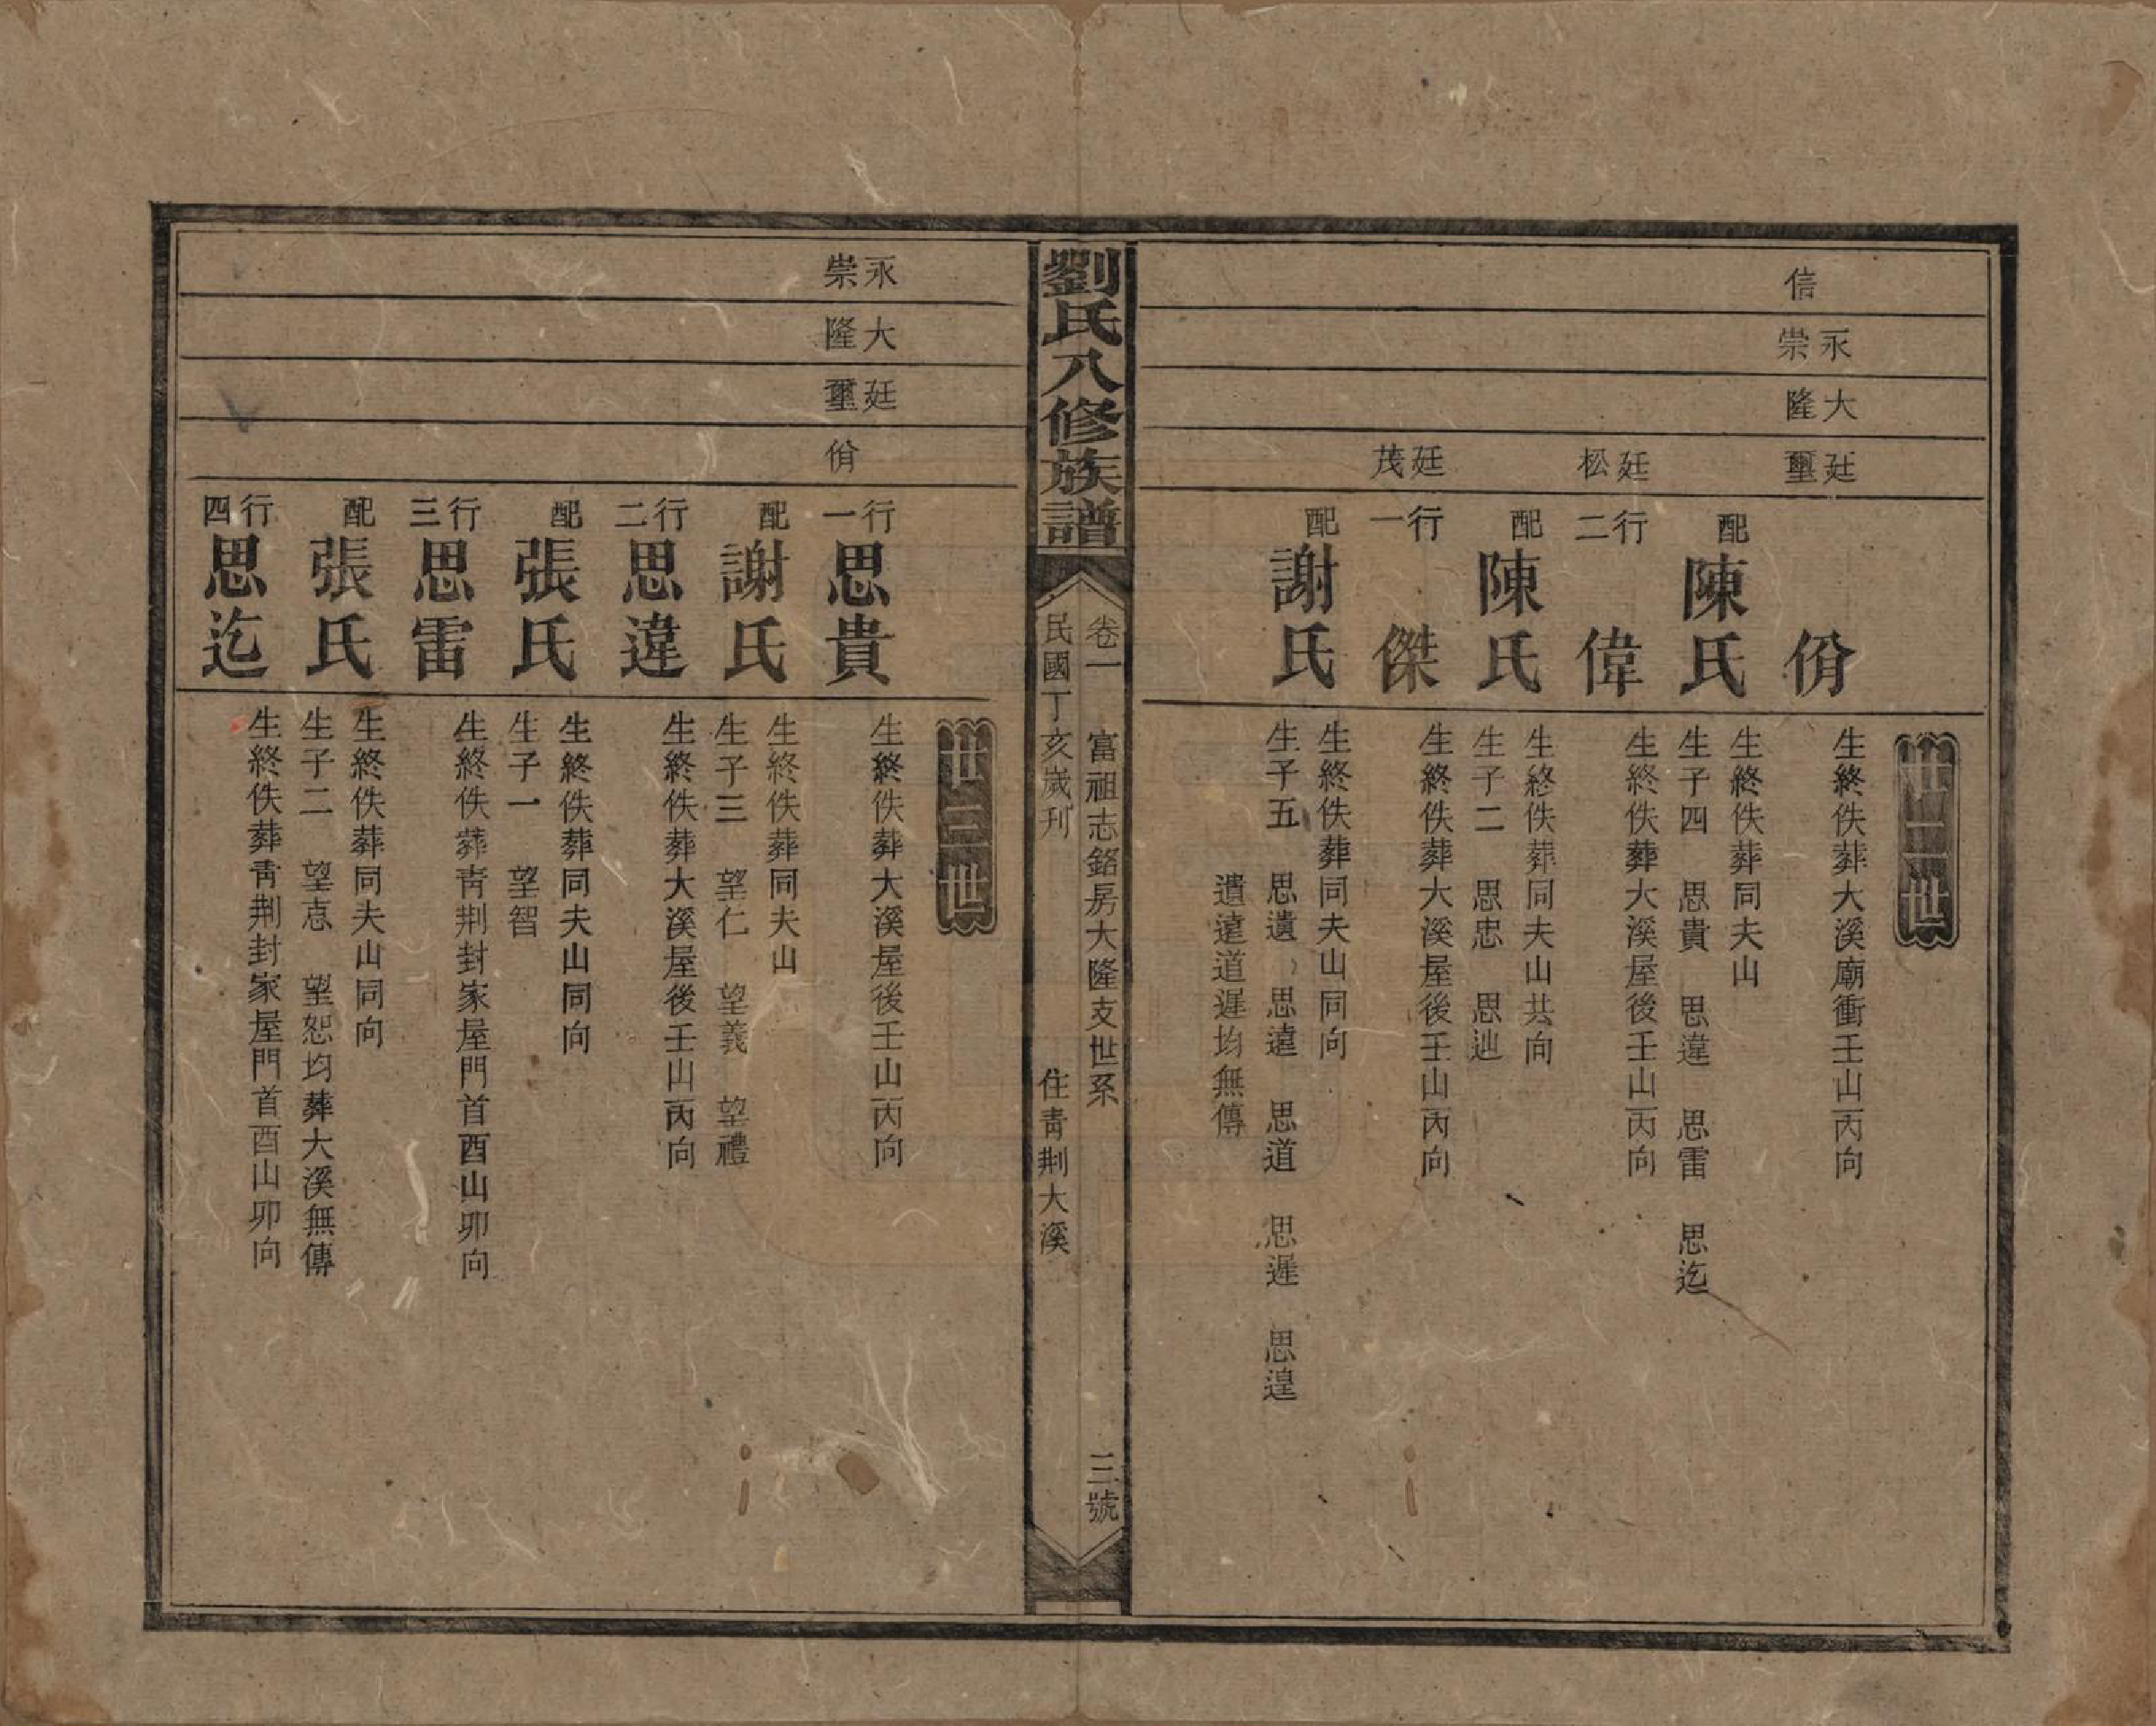 廿二世
信
永崇
大隆
廷璽
佾
生終佚葬大溪廟衝壬山丙向
配陳氏
生終佚葬同夫山
生子四 思貴 思違 思雷 思迄
廷松
行二 偉
生終佚葬大溪屋後壬山丙向
配陳氏
生終佚葬同夫山共向
生子二 思忠 思
廷茂
行一 傑
生終佚葬大溪屋後壬山丙向
配謝氏
生終佚葬同夫山同向
生子五 思遺 思遠 思道 思遲 思遑
遺遠道遲均無傳
劉氏八修族譜
卷一 富祖志銘房大隆支世系 三號
民國丁亥歲刋 住青荆大溪
廿三世
永崇
大隆
廷璽
佾
行一 思貴
生終佚葬大溪屋後壬山丙向
配謝氏
生終佚葬同夫山
生子三 望仁 望義 望禮
行二 思違
生終佚葬大溪屋後壬山丙向
配張氏
生終佚葬同夫山同向
生子一 望智
行三 思雷
生終佚葬青荆封家屋門首酉山卯向
配張氏
生終佚葬同夫山同向
生子二 望 望恕均葬大溪無傳
行四 思迄
生終佚葬青荆封家屋門首酉山卯向